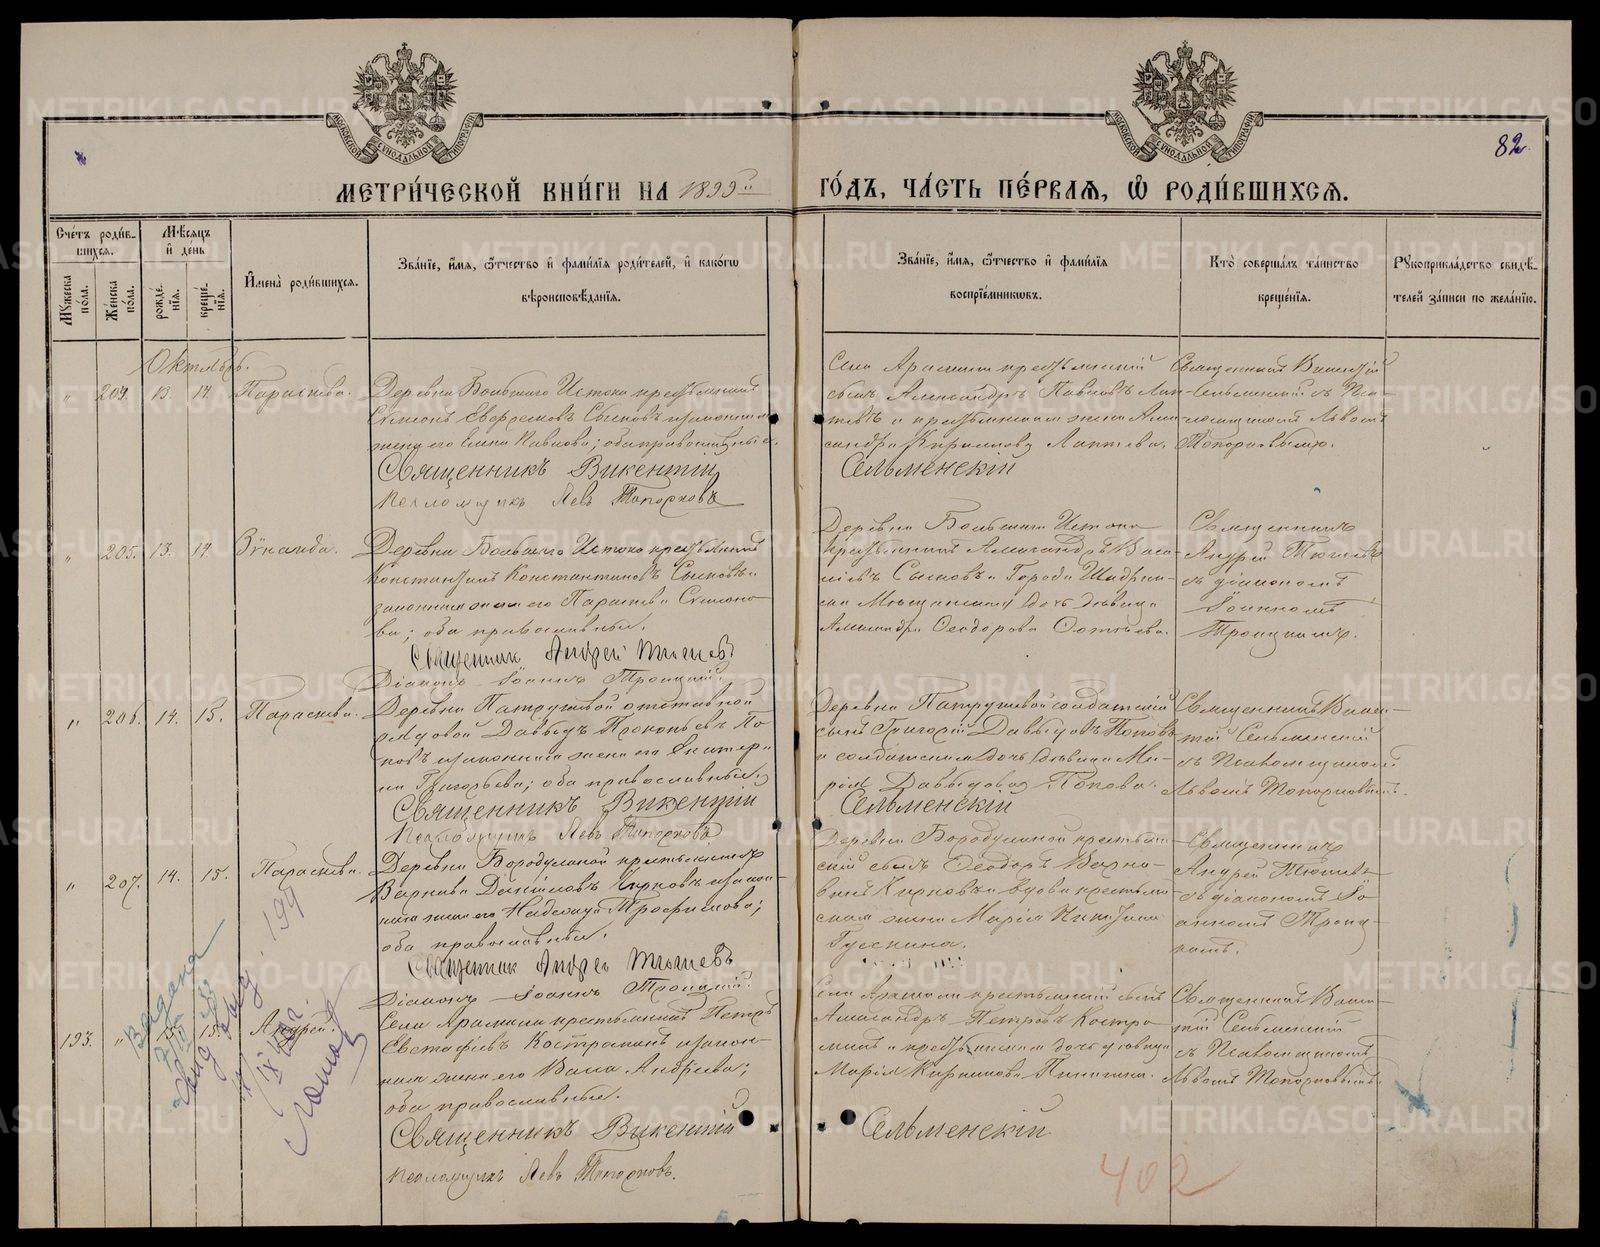 МОСКОВСКОЙ СѴНОДАЛЬНОЙ ТИПОГРАФІИ
МОСКОВСКОЙ СѴНОДАЛЬНОЙ ТИПОГРАФІИ
82
МЕТРИ́ЧЕСКОЙ КНИ́ГИ НА 1899й ГО́ДЪ, ЧА́СТЬ ПЕ́РВАѦ, Ѡ РОДИ́ВШИХСѦ.
Сче́тъ роди́в-
шихся.
Мꙋжеска по́ла.
Же́нска по́ла.
Мѣ́сяцъ и҆ де́нь
рожде́-нїя.
креще́-нїя.
И҆мена̀ роди́вшихся.
Зва́нїе, и҆́мя, ѻ҆́тчество и҆ фами́лїя роди́телей, и҆ како́гѡ
вѣроисповѣ́данїя.
Зва́нїе, и҆́мя, ѻ҆́тчество и҆ фами́лїя
воспрїе́мниковъ.
Кто̀ соверша́лъ та́инство
креще́нїя.
Рꙋкоприкла́дство свидѣ́-
телей за́писи по жела́нїю.
Октябрь.
" 204. 13. 14. Параскева.
Деревни Большаго Истока крестьянинъ
Симеонъ Евфремовъ Сысковъ и законная
жена его Елена Павлова; оба православные.
Священникъ Викентій Сельменскій
Псаломщикъ Левъ Топорковъ
Села Арамили крестьянскій
сынъ Александръ Павловъ Лап-
тевъ и крестьянская жена Алек-
сандра Кириллова Лаптева.
Священникъ Викентій
Сельменскій съ Пса-
ломщикомъ Львомъ
Топорковымъ.
" 205. 13. 14. Зинаида.
Деревни Большаго Истока крестьянинъ
Константинъ Константиновъ Сысковъ и
законная жена его Параскева Симеоно-
ва; оба православные.
Священник Андрей Тюшев
Діаконъ Іоаннъ Троицкій.
Деревни Большаго Истока
крестьянинъ Александръ Васи-
льевъ Сысковъ и Города Шадрин-
ска Мѣщанская дочь девица
Александра Феодорова
Священникъ
Андрей Тюшевъ
съ діакономъ
Іоанномъ
Троицкимъ.
" 206. 14. 15. Параскева.
Деревни Патрушевой отставной
рядовой Давыдъ Прокопьевъ По-
повъ и законная жена его Екатери-
на Григорьева; оба православные.
Священникъ Викентій Сельменскій
Псаломщикъ Левъ Топорковъ
Деревни Патрушевой солдатскій
сынъ Григорій Давыдовъ Поповъ
и солдатская дочь девица Ма-
рія Давыдова Попова.
Священникъ Викен-
тій Сельменскій
съ Псаломщикомъ
Львомъ Топорковымъ.
" 207. 14. 15. Параскева.
Деревни Бородулиной крестьянинъ
Варнава Даніиловъ Чирковъ и закон-
ная жена его Надежда Трофимова;
оба православные.
Священник Андрей Тюшевъ
Діаконъ Іоаннъ Троицкій.
Деревни Бородулиной крестьян-
скій сынъ Феодоръ Варна-
винъ Чирковъ и вдова крестьян-
ская жена Марія Никитина
Гускина.
Священникъ
Андрей Тюшевъ
съ діакономъ Іо-
анномъ Троиц-
кимъ.
193. " 15. Андрей.
Села Арамили крестьянинъ Петръ
Евстафіевъ Костромин и закон-
ная жена его Васса Андреева;
оба православные.
Священникъ Викентій Сельменскій
Псаломщикъ Левъ Топорковъ.
Села Арамили крестьянскій сынъ
Александръ Петровъ Костро-
минъ и крестьянская дочь девица
Марія
Священникъ Викен-
тій Сельменскій
съ Псаломщикомъ
Львомъ Топорковымъ.
402